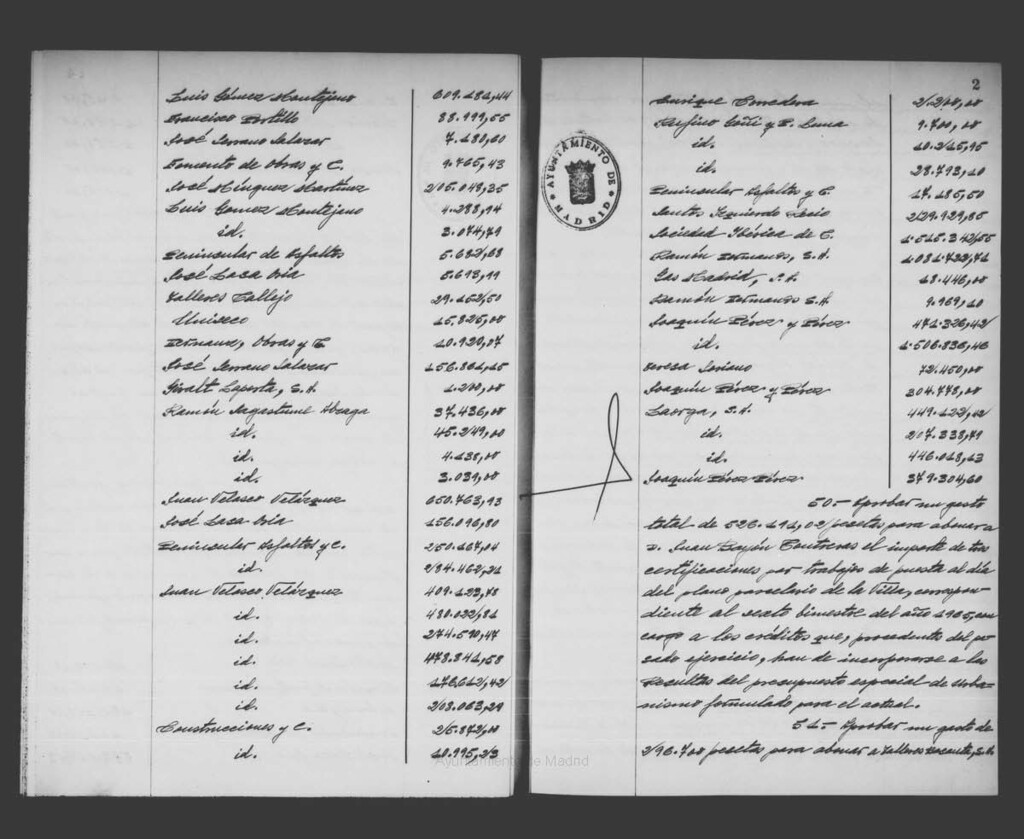 Luis Gómez Montejano 609.181,44
Francisco Portillo 88.999,55
José Serrano Salazar 7.480,60
Fomento de Obras y C. 9.765,43
José Mínguez Martínez 205.049,35
Luis Gomez Montejano 4.288,94
id. 3.074,79
Peninsular de Asfaltos 5.682,88
José Lasa
Talleres Callejo 29.162,50
Uniseco 15.825,00
Hermanz, Obras y C. 10.920,07
José Serrano Salazar 156.861,15
Giralt Laporta, S.A. 1.200,00
Ramón Agustume 37.436,00
id. 45.249,00
id. 4.138,00
id. 3.039,00
Juan Velasco Velázquez 650.763,93
José Lasa 156.096,80
Peninsular Asfaltos y C. 250.167,04
id. 284.462,31
Juan Velasco Velázquez 409.123,78
id. 430.022,81
id. 274.590,47
id. 478.841,58
id. 176.612,42
id. 203.063,29
Construcciones y C. 25.872,00
id. 10.995,23
Ayuntamiento de Madrid
2
AYUNTAMIENTO DE MADRID
Enrique Corredera 2.200,00
Rufino Goñi y P. Luna 9.700,00
id. 10.245,95
id. 28.793,10
Peninsular Asfaltos y C. 17.485,50
Santos Izquierdo 229.929,85
Sociedad Ibérica de C. 1.515.342,55
Ramón Hermanos, S.A. 1.081.732,71
Gas Madrid, S.A. 18.446,00
Ramón Hermanos S.A. 9.969,10
Joaquín Pérez y Pérez 471.326,42
id. 1.506.836,46
Teresa Soriano 72.450,00
Joaquín Pérez y Pérez 304.778,00
Laorga, S.A. 449.122,02
id. 207.338,79
id. 446.018,13
Joaquín Pérez Pérez 379.304,60
50.- Aprobar un gasto
total de 526.191,02 pesetas, para abonar a
D. Juan Bayón Contreras el importe de tres
certificaciones por trabajos de puesta al día
del plano parcelario de la Villa, correspon-
diente al sexto bimestre del año 1965, con
cargo a los créditos que, procedentes del pa-
sado ejercicio, han de incorporarse a las
Resultas del presupuesto especial de Urba-
nismo formulado para el actual.
51.- Aprobar un gasto de
296.700 pesetas para abonar a Talleres S.A.